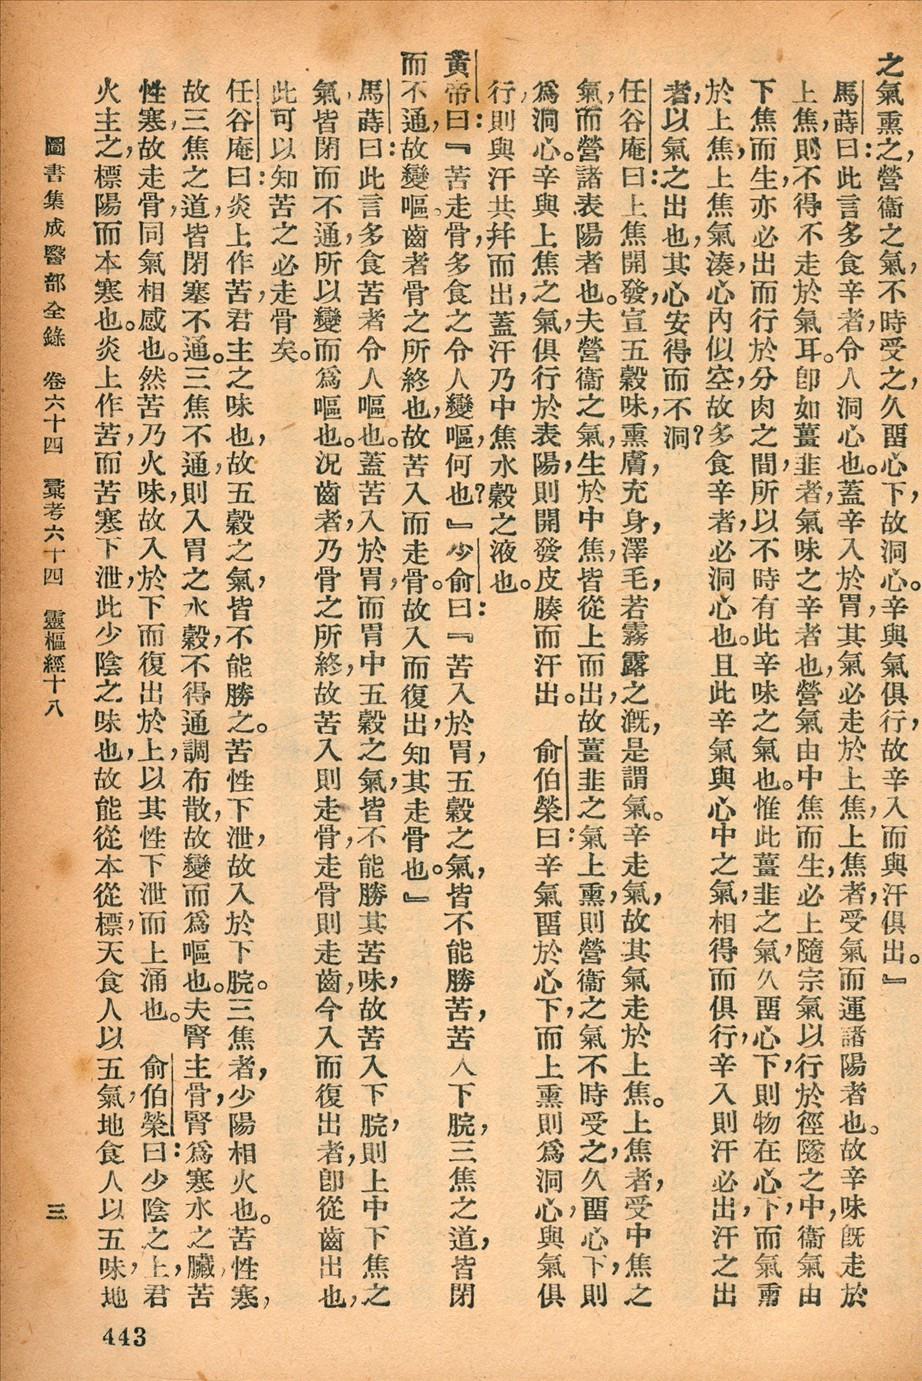 之氣熏之，營衞之氣，不時受之，久留心下，故洞心。辛與氣俱行，故辛入而與汗俱出。』
馬蒔曰：此言多食辛者，令人洞心也。蓋辛入於胃，其氣必走於上焦，上焦者，受氣而運諸陽者也。故辛味旣走於
上焦，則不得不走於氣耳。卽如薑韭者，氣味之辛者也，營氣由中焦而生，必上隨宗氣以行於徑隧之中，衞氣由
下焦而生，亦必出而行於分肉之間，所以不時有此辛味之氣也。惟此薑韭之氣，久留心下，則物在心下，而氣熏
於上焦，上焦氣湊，心內似空，故多食辛者，必洞心也。且此辛氣與心中之氣，相得而俱行，辛入則汗必出，汗之出
者，以氣之出也，其心安得而不洞？
任谷庵曰：上焦開發，宣五穀味，熏膚，充身，澤毛，若霧露之漑，是謂氣。辛走氣，故其氣走於上焦。上焦者，受中焦之
氣，而營諸表陽者也。夫營衞之氣，生於中焦，皆從上而出，故薑韭之氣上熏，則營衞之氣不時受之，久留心下，則
爲洞心。辛與上焦之氣，俱行於表陽，則開發皮腠而汗出。　俞伯榮曰：辛氣留於心下，而上熏則爲洞心，與氣俱
行，則與汗共幷而出，蓋汗乃中焦水穀之液也。
黃帝曰：『苦走骨，多食之令人變嘔，何也？』少俞曰：『苦入於胃，五穀之氣，皆不能勝苦，苦入下脘，三焦之道，皆閉
而不通，故變嘔。齒者骨之所終也，故苦入而走骨，故入而復出，知其走骨也。』
馬蒔曰：此言多食苦者令人嘔也。蓋苦入於胃，而胃中五穀之氣，皆不能勝其苦味，故苦入下脘，則上中下焦之
氣，皆閉而不通，所以變而爲嘔也。況齒者，乃骨之所終，故苦入則走骨，走骨則走齒，今入而復出者，卽從齒出也，
此可以知苦之必走骨矣。
任谷庵曰：炎上作苦，君主之味也，故五穀之氣，皆不能勝之。苦性下泄，故入於下脘。三焦者，少陽相火也。苦性寒，
故三焦之道，皆閉塞不通。三焦不通，則入胃之水穀，不得通調布散，故變而爲嘔也。夫腎主骨，腎爲寒水之臟，苦
性寒，故走骨，同氣相感也。然苦乃火味，故入於下而復出於上，以其性下泄而上涌也。　俞伯榮曰：少陰之上，君
火主之，標陽而本寒也。炎上作苦，而苦寒下泄，此少陰之味也，故能從本從標，天食人以五氣，地食人以五味，地
圖書集成醫部全錄　卷六十四　彙考六十四　靈樞經十八　三
443